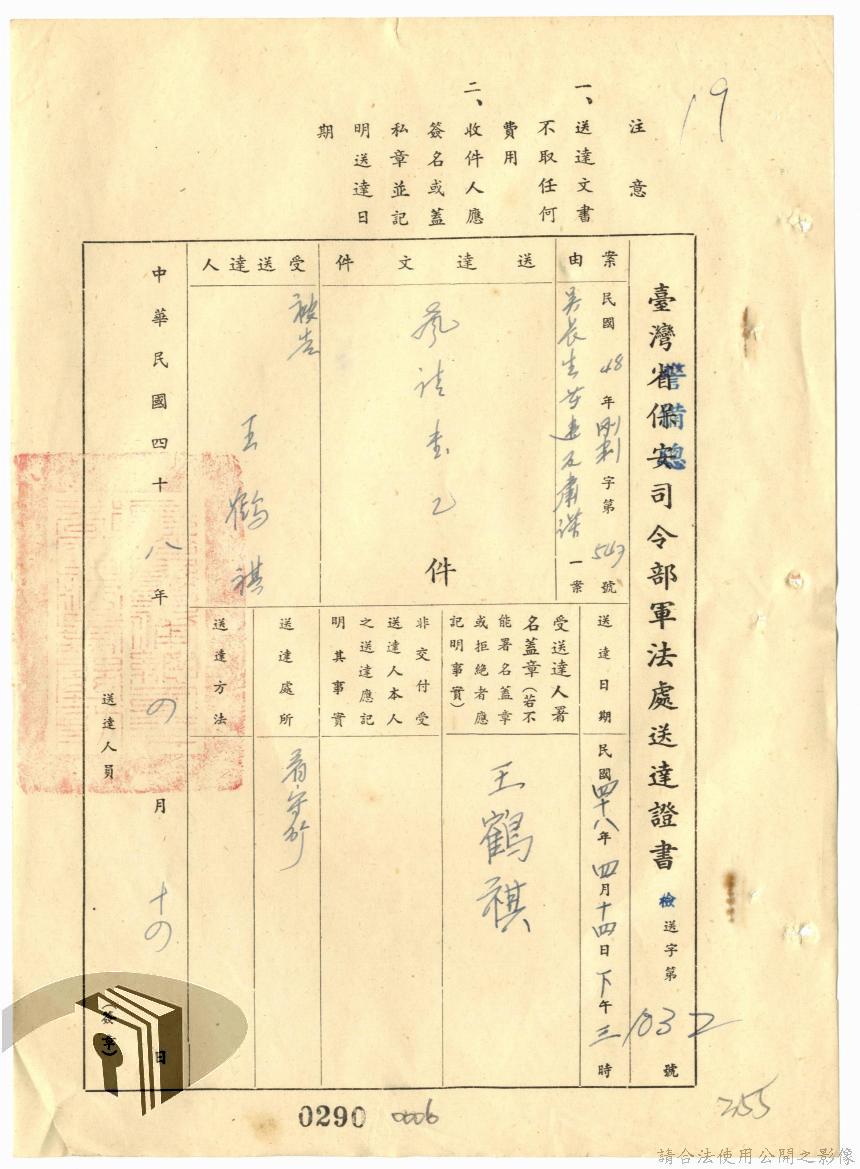 19
注意
一、送達文書
不取任何
費用
二、收件人應
簽名或蓋
私章並記
明送達日
期
臺灣省保安司令部軍法處送達證書 檢送字第1032號
警備總
案由
民國48年 字第547號
吳長生等 一案
送達文件
乙件
受送達人
被告
王鶴祺
送達日期
民國四十八年四月十四日下午三時
受送達人署
名蓋章(若不
能署名蓋章
或拒絕者應
記明事實)
王鶴祺
非交付受
送達人本人
之送達應記
明其事實
送達處所
看守所
送達方法
中華民國四十八年四月十四日
送達人員(簽章)
0290
0006
255
請合法使用公開之影像